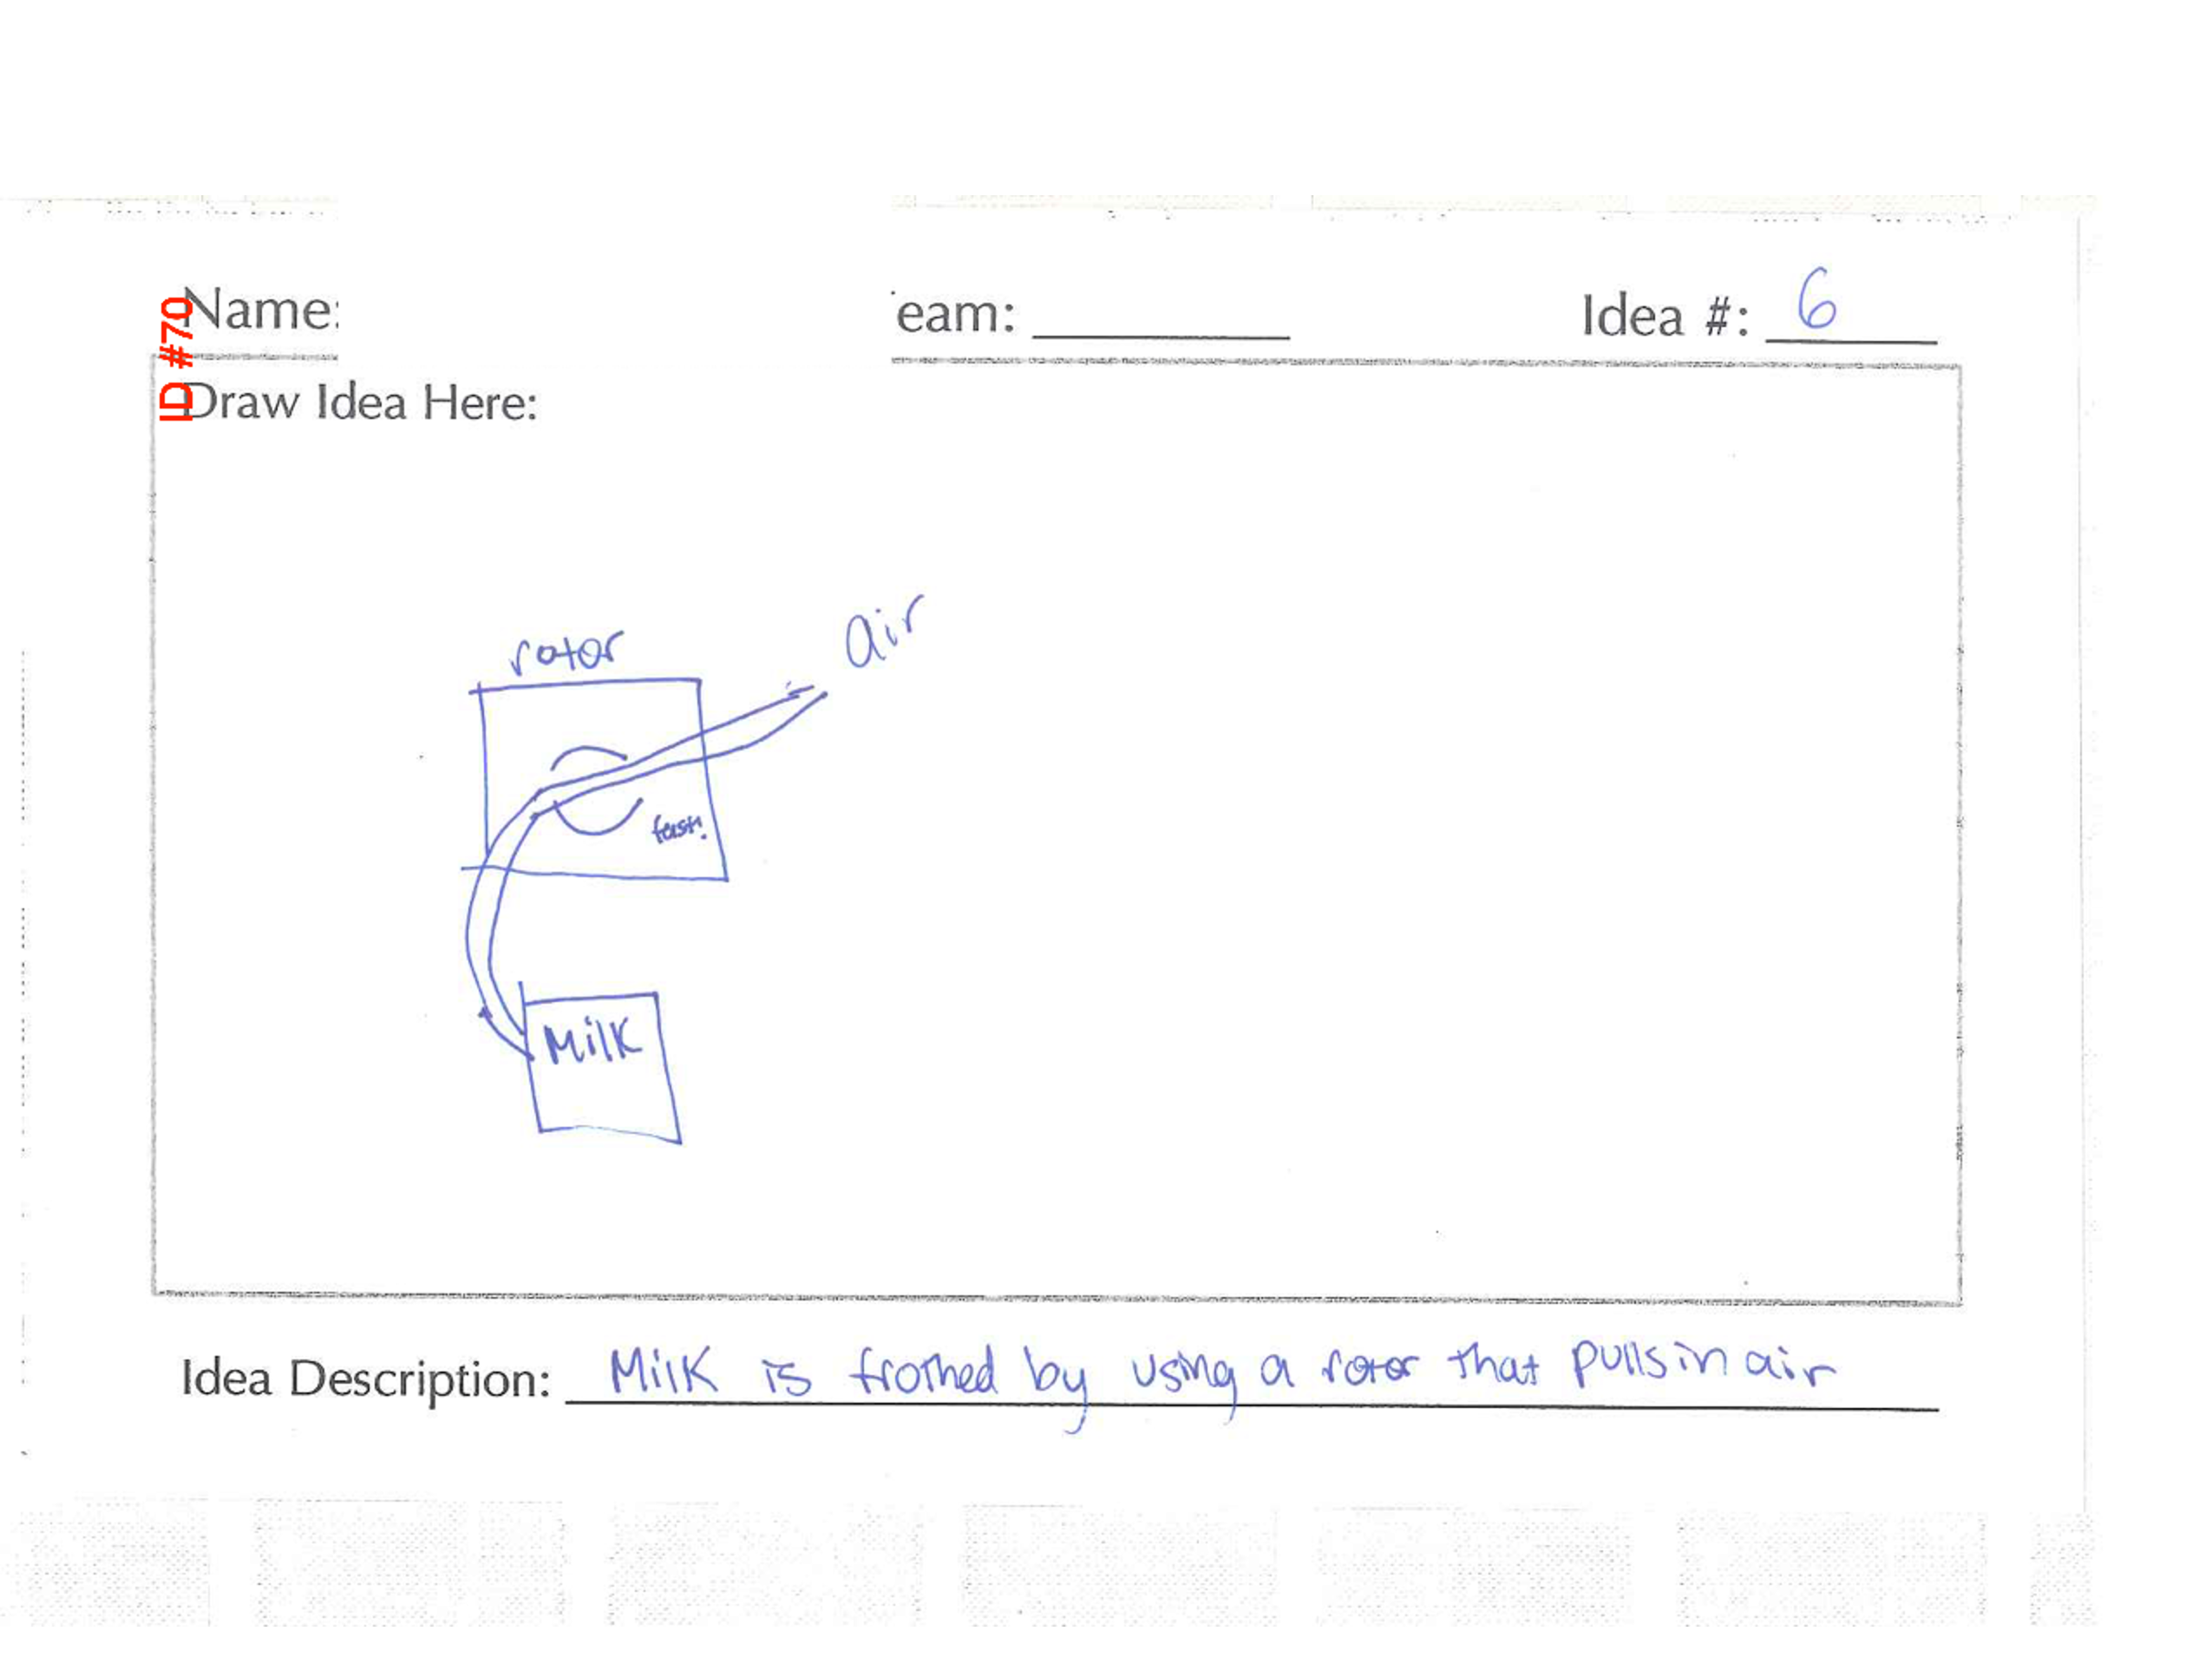 Name: eam: Idea #: 6
ID #70
Draw Idea Here:
air
rotor
fast!
Milk
Idea Description: Milk is frothed by using a rotor that pulls in air